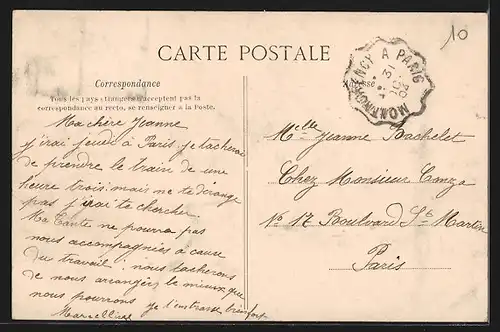 10
CARTE POSTALE
MONTMORENCY A PARIS
31
Correspondance
Tous les pays étrangers n'acceptent pas la
correspondance au recto, se renseigner à la Poste.
Adresse
Ma chère Jeanne
j'irai jeudi à Paris, je tacherai
de prendre le train de une
heure trois. mais ne te dérange
pas j'irai te chercher.
Ma Tante ne pourra pas
nous accompagnées à cause
du travail, nous tacherons
de nous arranger le mieux que
nous pourrons je t'embrasse bien fort
Marcelline
Melle Jeanne Bachelet
Chez Monsieur
No 17 Boulvard St Martin
Paris